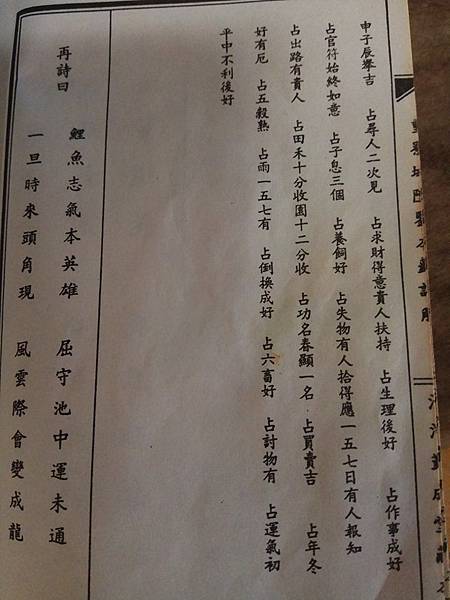 申子辰舉吉 占尋人二次見 占求財得意貴人扶持 占生理後好 占作事成好
占官符始終如意 占子息三個 占養飼好 占失物有人拾得應一五七日有人報知
占出路有貴人 占田禾十分收園十二分收 占功名春顯一名 占買賣吉 占年冬
好有厄 占五穀熟 占雨一五七有 占倒換成好 占六畜好 占討物有 占運氣初
平中不利後好
再詩曰
鯉魚志氣本英雄 屈守池中運未通
一旦時來頭角現 風雲際會變成龍